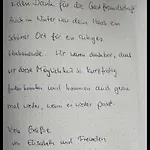 Vielen Dank für die Gastfreundschaft
Auch im Winter war dein Haus ein
schöner Ort für ein ruhiges
Wochenende. Wir waren dankbar, dass
wir diese Möglichkeit so kurzfristig
hatten und kommen auch gerne
mal wieder, wenn es wieder passt.
Viele Grüße
von Elisabeth und Freunden